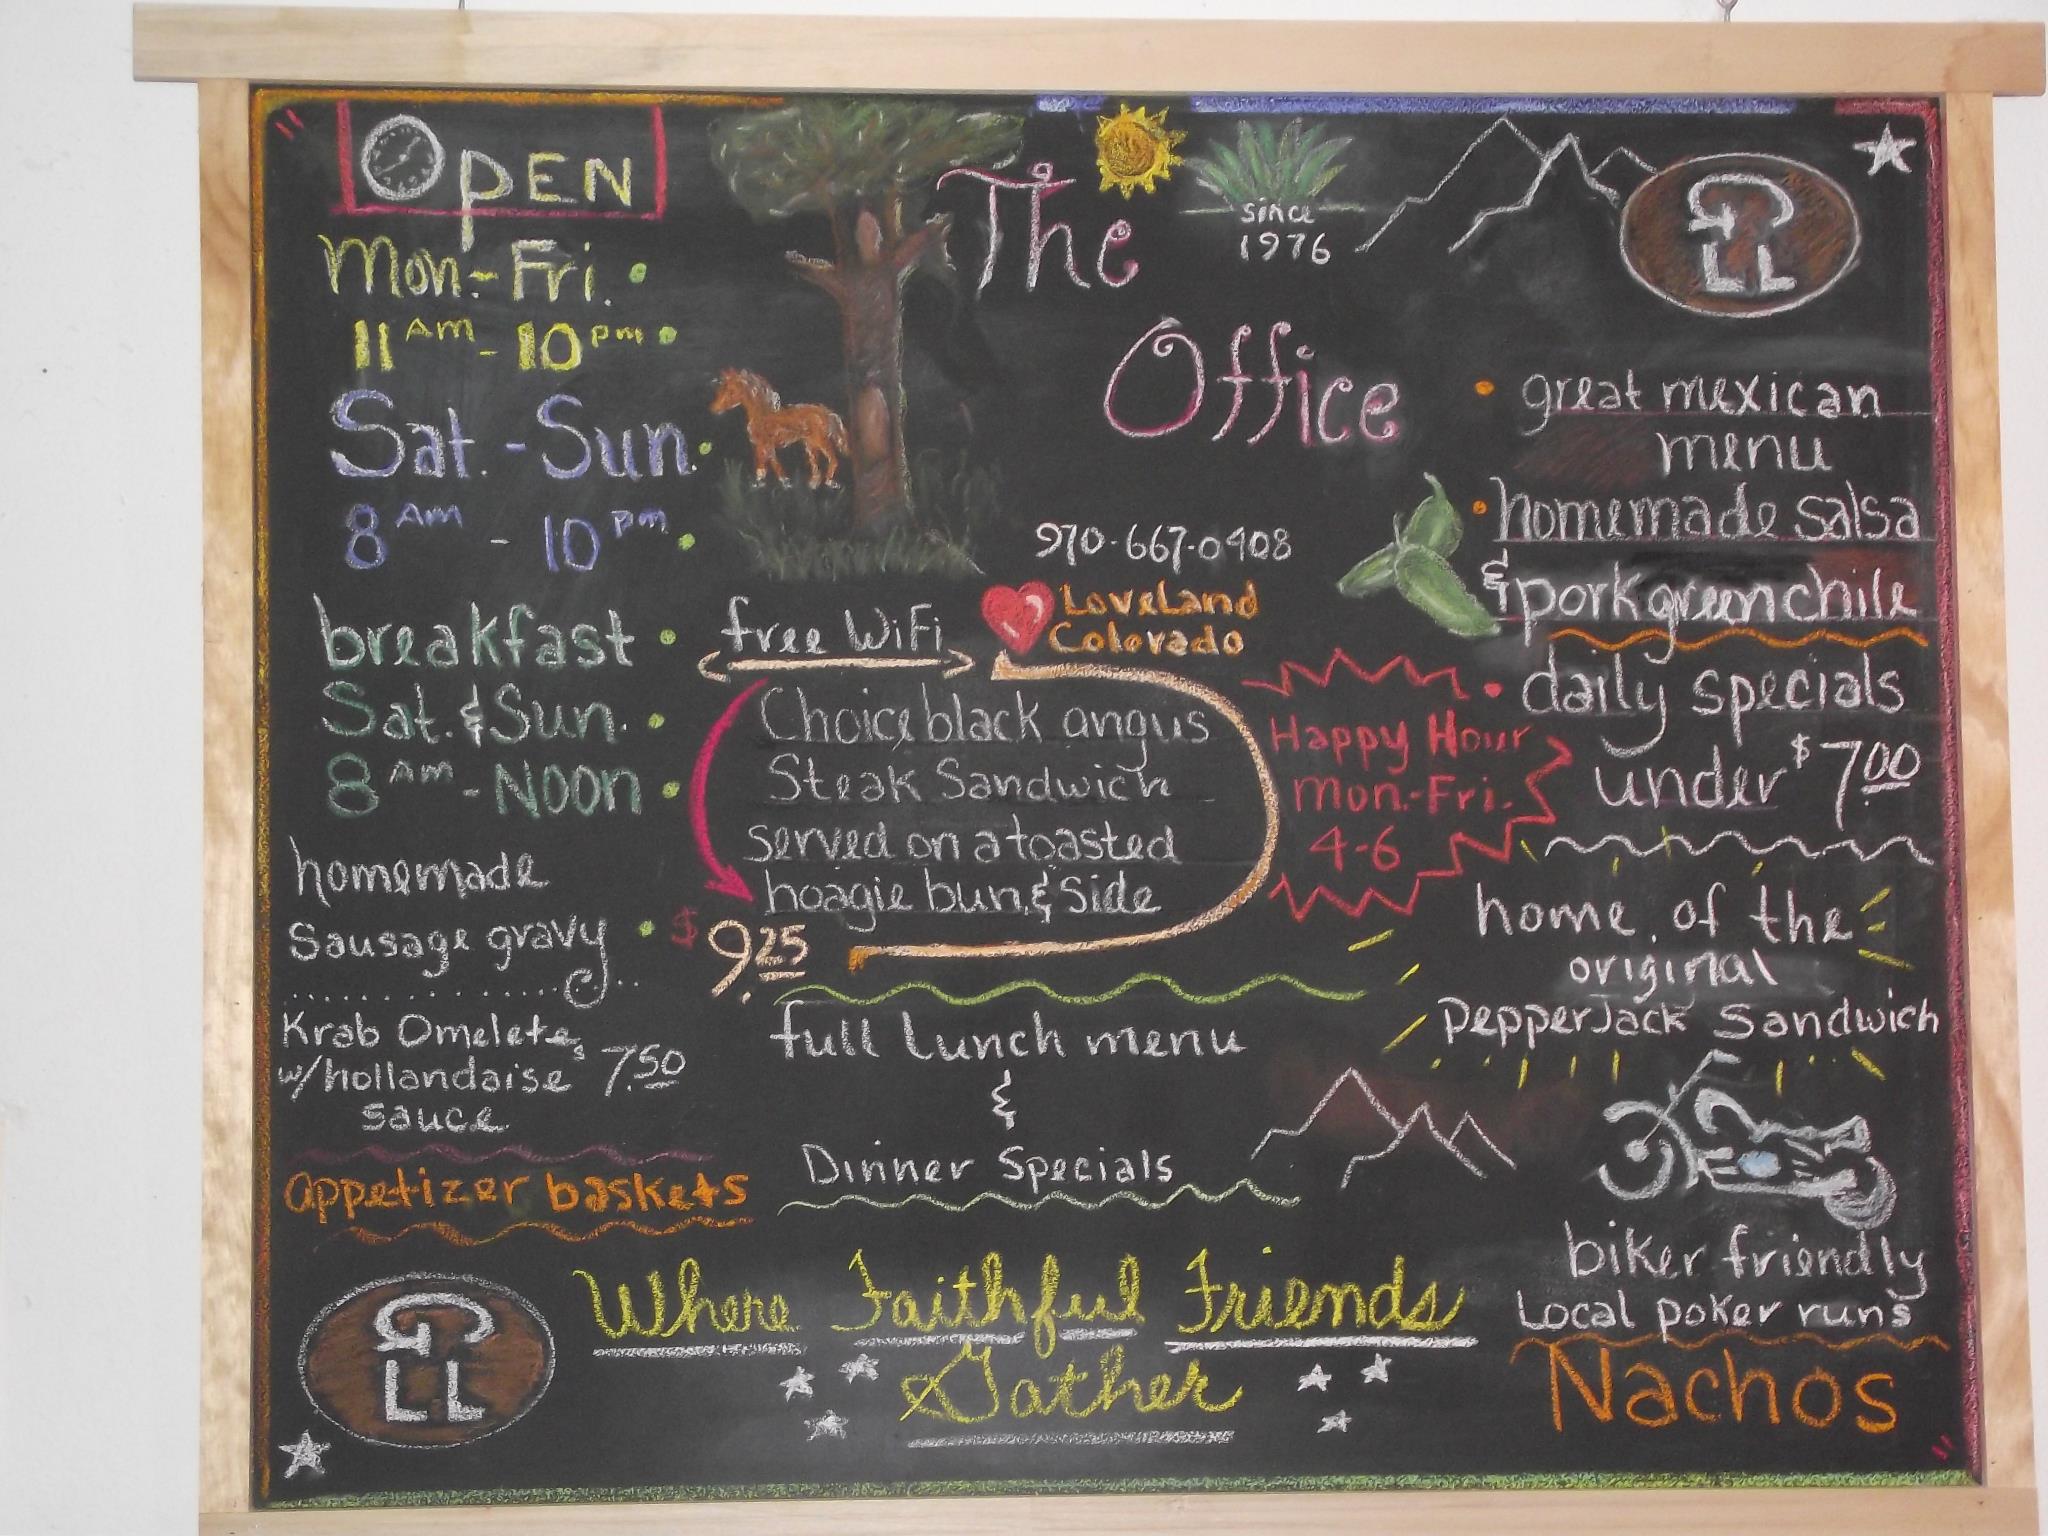 Open
Mon.-Fri.
11 AM - 10 pm
Sat.-Sun.
8 AM - 10 pm
breakfast
Sat. & Sun.
8 AM - NOON
homemade
sausage gravy
Krab Omelete,
w/hollandaise 7.50
sauce
appetizer baskets
The
Office
since
1976
970-667-0408
Loveland
Colorado
free WiFi
Choice black angus
Steak Sandwich
served on a toasted
hoagie bun, & side
$9.25
full lunch menu
&
Dinner Specials
Happy Hour
Mon.-Fri.
4-6
great mexican
menu
homemade salsa
& pork green chile
daily specials
under $7.00
home of the
original
PepperJack Sandwich
biker friendly
Local poker runs
Nachos
Where Faithful Friends
Gather